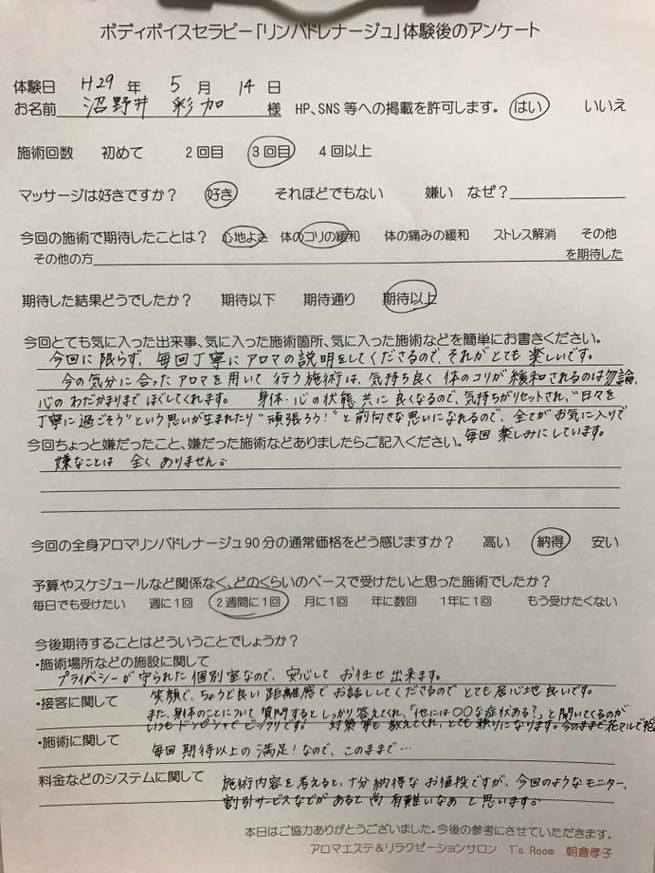 ボディボイスセラピー「リンパドレナージュ」体験後のアンケート
体験日 H29 年 5 月 14 日
お名前 沼野井 彩加 様 HP、SNS 等への掲載を許可します。 はい いいえ
施術回数 初めて 2回目 3回目 4回以上
マッサージは好きですか? 好き それほどでもない 嫌い なぜ?
今回の施術で期待したことは? 心地よさ 体のコリの緩和 体の痛みの緩和 ストレス解消 その他
その他の方 を期待した
期待した結果どうでしたか? 期待以下 期待通り 期待以上
今回とても気に入った出来事、気に入った施術箇所、気に入った施術などを簡単にお書きください。
今回に限らず、毎回丁寧にアロマの説明をしてくださるので、それがとても楽しいです。
今の気分に合ったアロマを用いて行う施術は、気持ち良く体のコリが緩和されるのは勿論、
心のわだかまりまでほぐしてくれます。 身体・心の状態共に良くなるので、気持ちがリセットされ、"日々を
丁寧に過ごそう"という思いが生まれたり"頑張ろう!"と前向きな思いになれるので、全てがお気に入りで
毎回楽しみにしています。
今回ちょっと嫌だったこと、嫌だった施術などありましたらご記入ください。
嫌なことは 全くありません。
今回の全身アロマリンパドレナージュ90分の通常価格をどう感じますか? 高い 納得 安い
予算やスケジュールなど関係なく、どのくらいのペースで受けたいと思った施術でしたか?
毎日でも受けたい 週に1回 2週間に1回 月に1回 年に数回 1年に1回 もう受けたくない
今後期待することはどういうことでしょうか?
・施術場所などの施設に関して
プライバシーが守られた個別室なので、安心してお任せ出来ます。
・接客に関して 笑顔で、ちょうど良い距離感でお話ししてくださるのでとても居心地良いです。
また、身体のことについて質問するとしっかり答えてくれ、「他には〇〇な症状ある?」と聞いてくるのが
いつもドンピシャでビックリです。 対策等も教えてくれ、とても頼りになります。今のままで花マルで
・施術に関して
毎回期待以上の満足!なので、このままで…
料金などのシステムに関して 施術内容を考えると、十分納得なお値段ですが、今回のようなモニター、
割引サービスなどがあると尚有難いなあと思います。
本日はご協力ありがとうございました。今後の参考にさせていただきます。
アロマエステ&リラクゼーションサロン T's Room 朝倉孝子